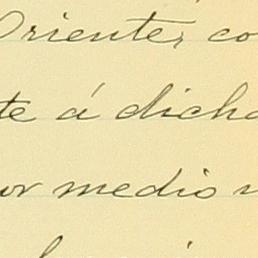 Oriente, co
te á dicho
or medio